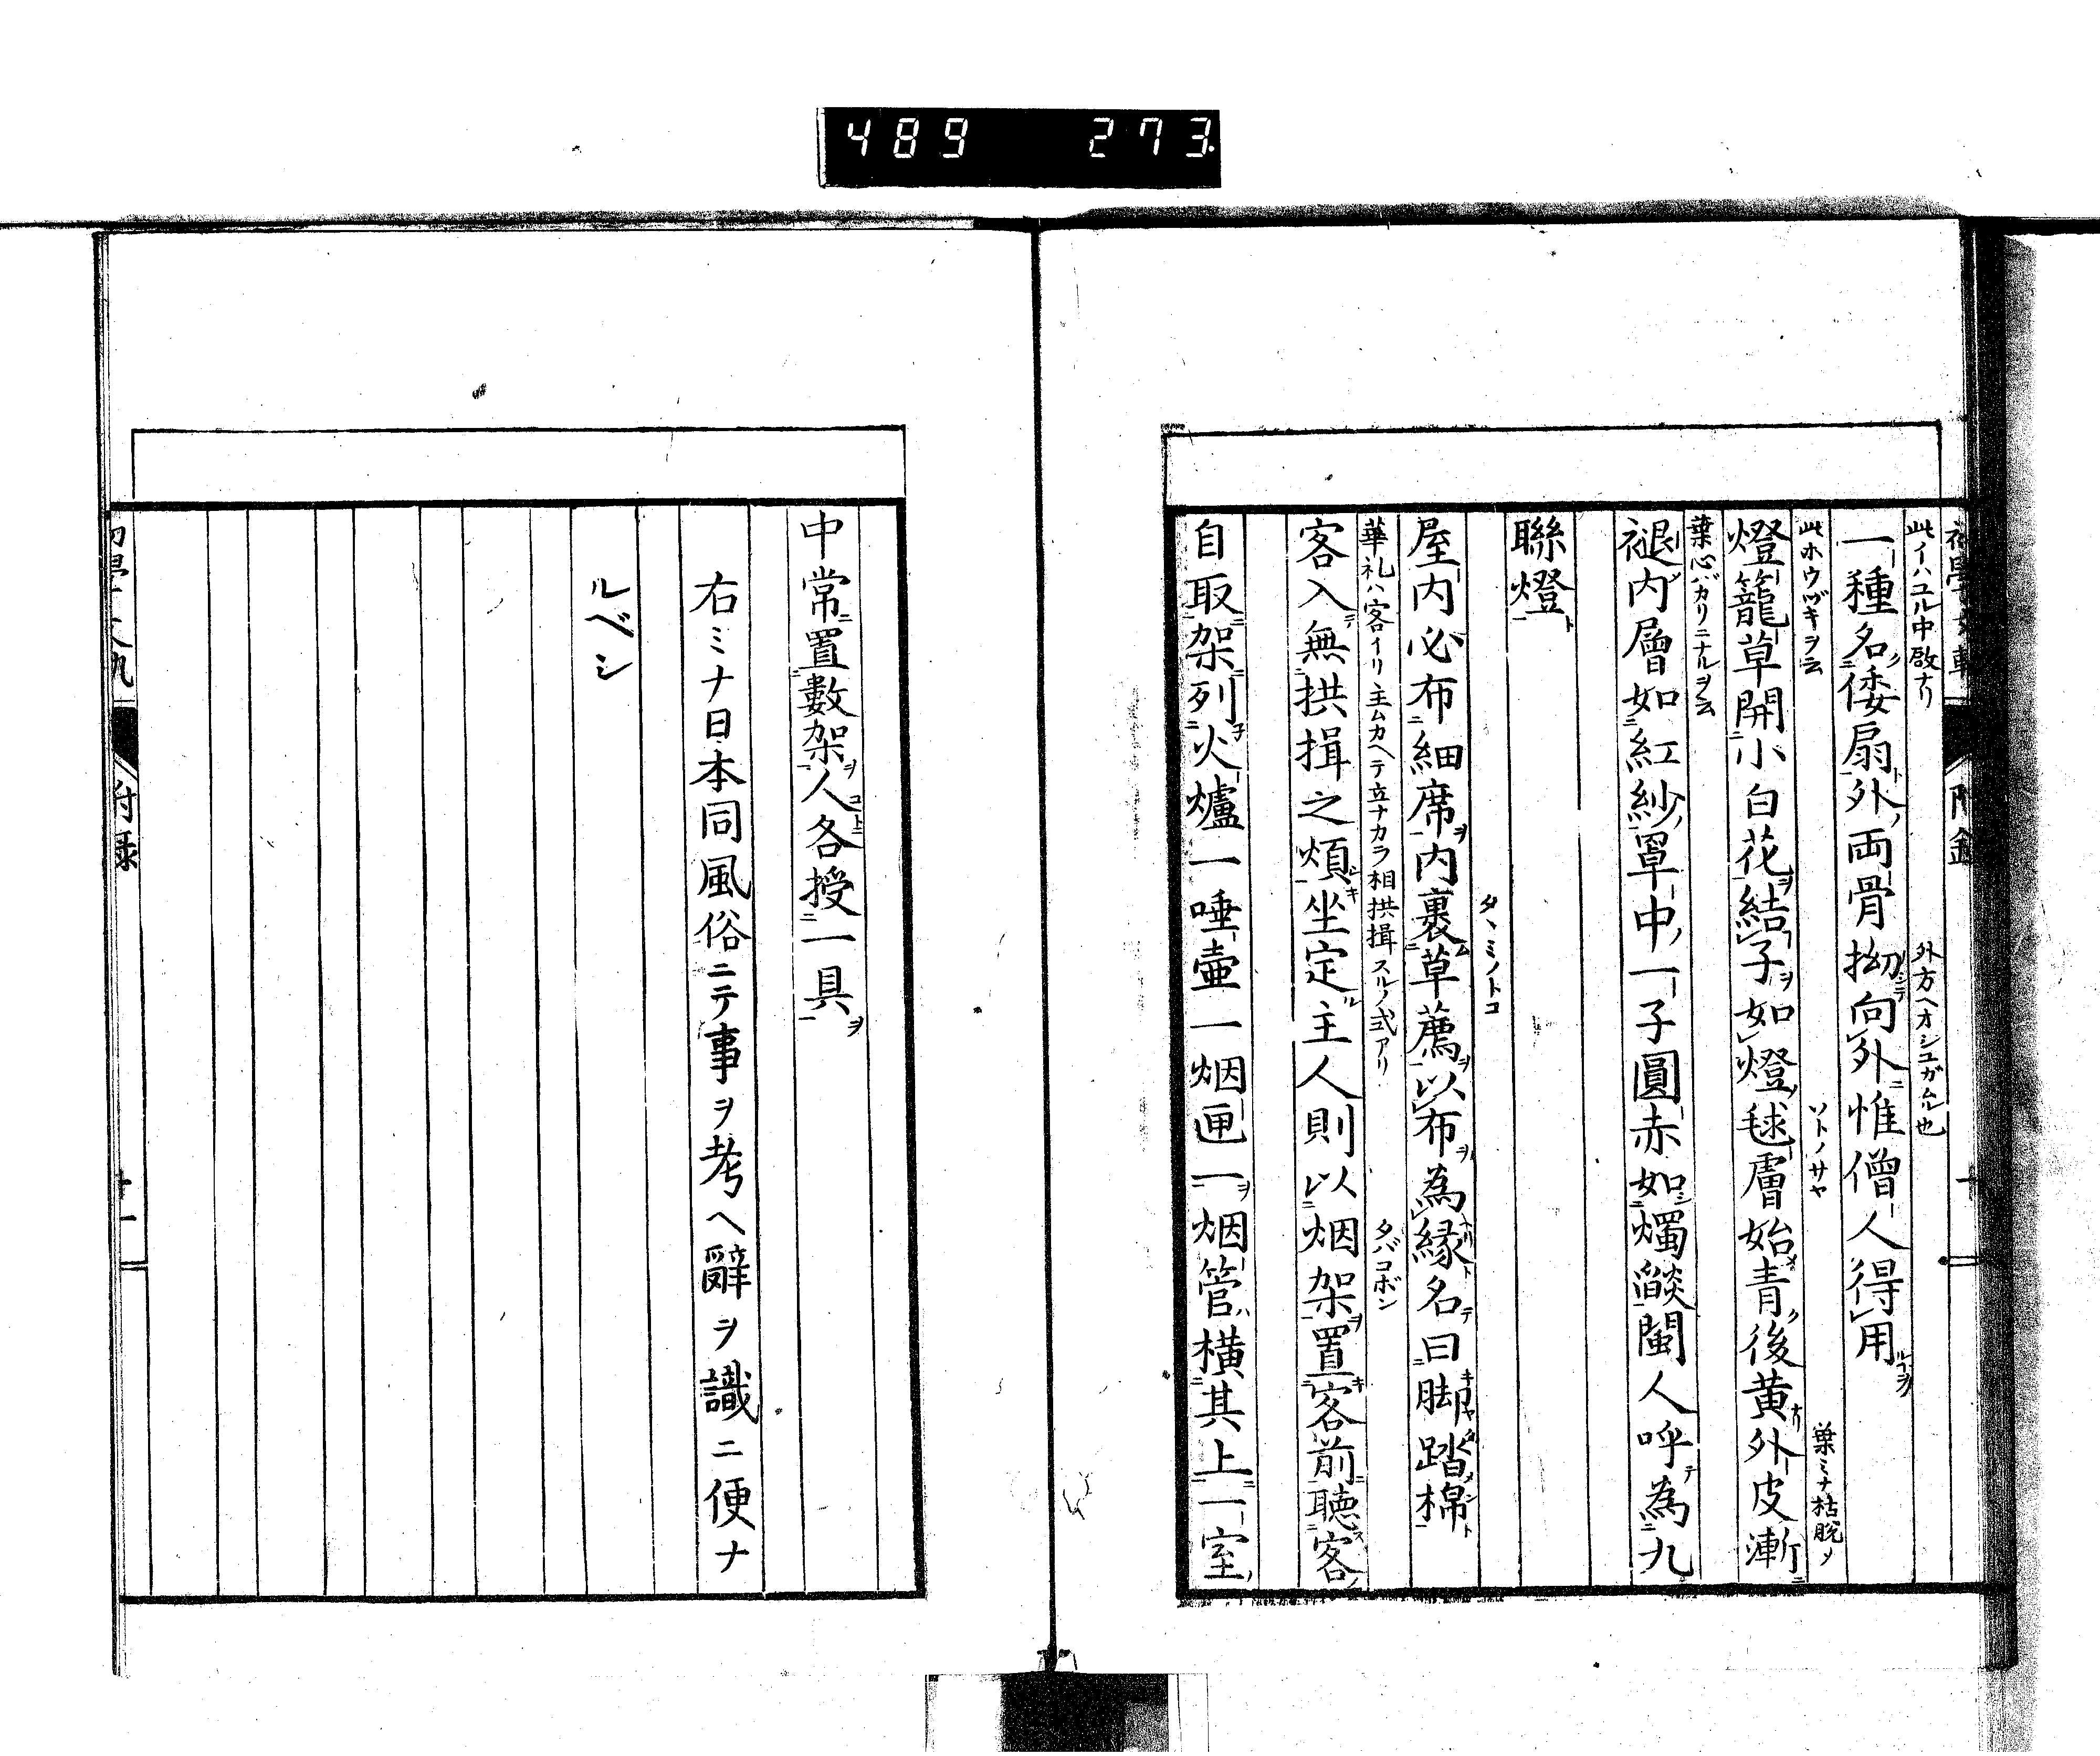 489 273
此イハユル中啟ナリ 外方ヘオシユガムル也
一種名倭扇外両骨拗向外惟僧人得用
此ホウヅキヲ云 ソトノサヤ 葉ミナ枯脱メ
燈籠草開小白花結子如燈毬膚始青後黄外皮漸
葉心バカリニナルヲ云
褪内層如紅紗罩中一子圓赤如燭燄閩人呼為九
聯燈
タヽミノトコ
屋内必布細席内裏草薦以布為縁名曰脚踏棉
華礼ハ客イリ主ムカヘテ立ナカラ相拱揖スルノ式アリ タバコボン
客入無拱揖之煩坐定主人則以烟架置客前聴客
自取架列火爐一唾壷一烟匣一烟管横其上一室
附録
中常置數架人各授一具
右ミナ日本同風俗ニテ事ヲ考ヘ辭ヲ識ニ便ナ
ルベシ
附録 十一